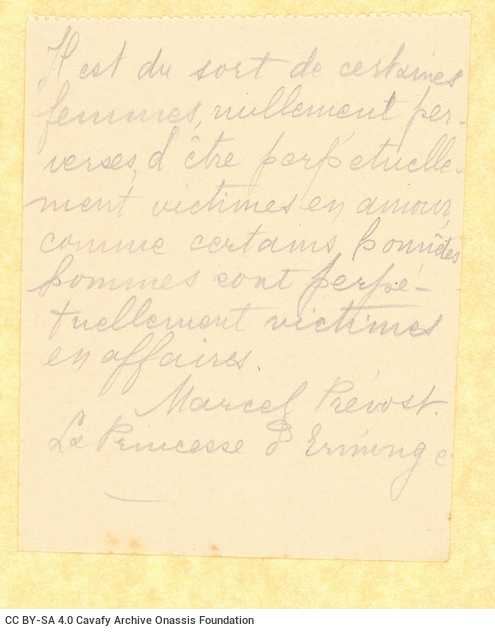 Il est du sort de certaines
femmes, nullement per-
verses, d'être perpetuelle-
ment victimes en amour,
comme certains honnêtes
hommes sont perpé-
tuellement victimes
en affaires.
Marcel Prévost.
La Princesse d'Erminge
CC BY-SA 4.0 Cavafy Archive Onassis Foundation